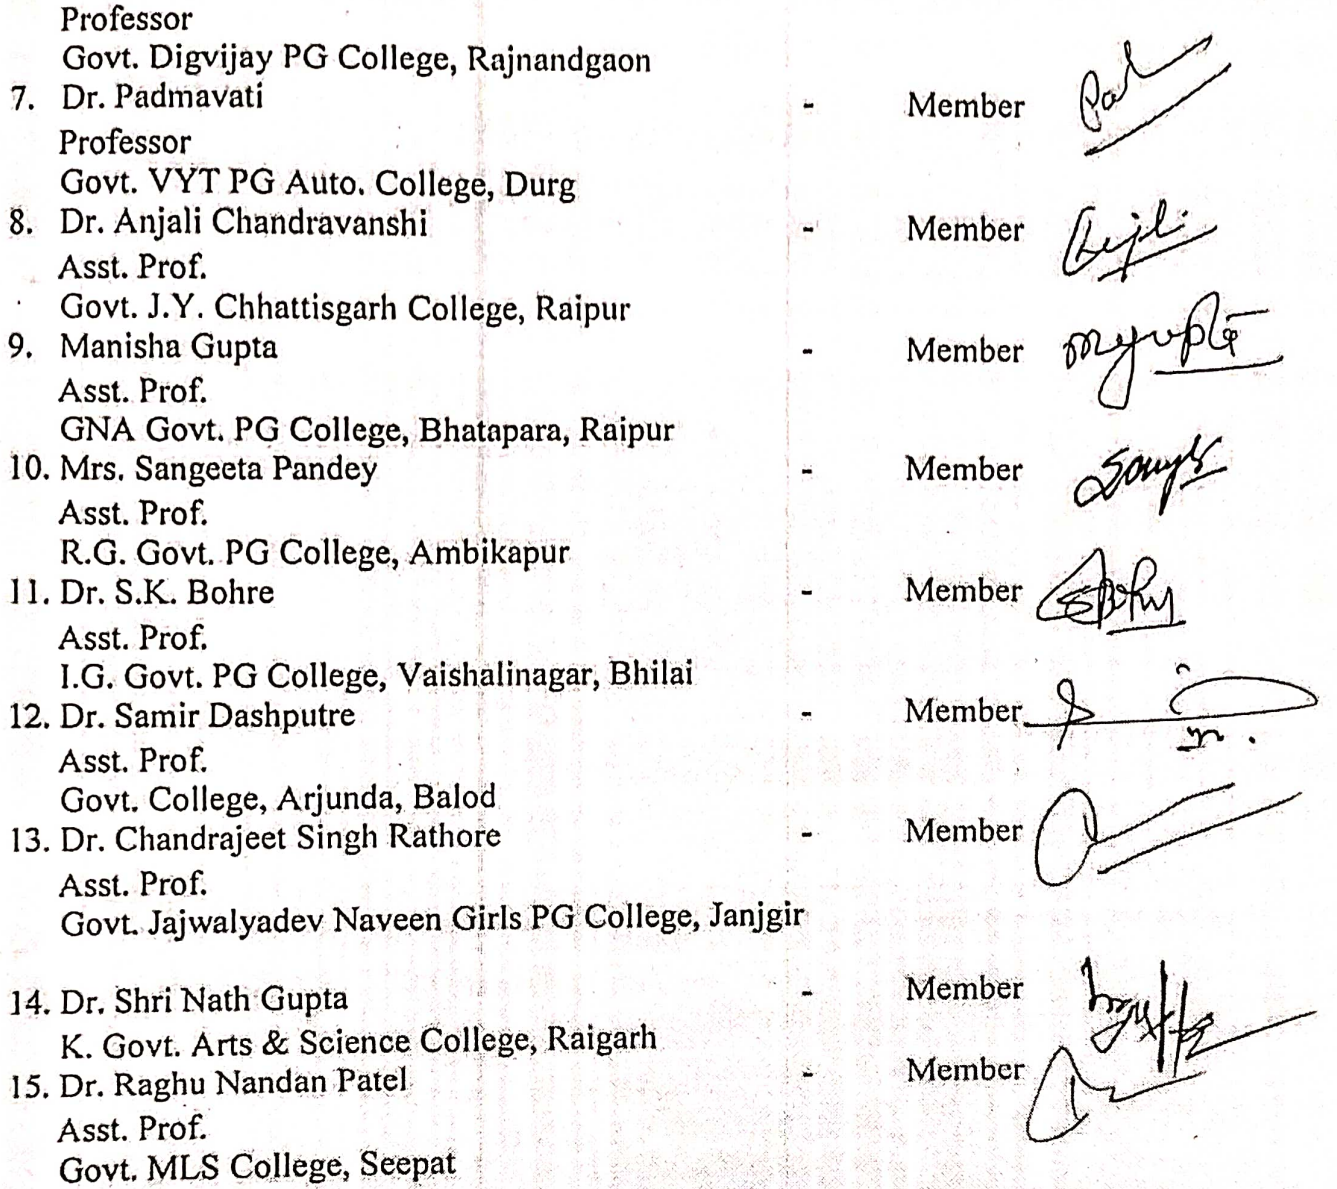 Professor
Govt. Digvijay PG College, Rajnandgaon
7. Dr. Padmavati - Member
Professor
Govt. VYT PG Auto. College, Durg
8. Dr. Anjali Chandravanshi - Member
Asst. Prof.
Govt. J.Y. Chhattisgarh College, Raipur
9. Manisha Gupta - Member
Asst. Prof.
GNA Govt. PG College, Bhatapara, Raipur
10. Mrs. Sangeeta Pandey - Member
Asst. Prof.
R.G. Govt. PG College, Ambikapur
11. Dr. S.K. Bohre - Member
Asst. Prof.
I.G. Govt. PG College, Vaishalinagar, Bhilai
12. Dr. Samir Dashputre - Member
Asst. Prof.
Govt. College, Arjunda, Balod
13. Dr. Chandrajeet Singh Rathore - Member
Asst. Prof.
Govt. Jajwalyadev Naveen Girls PG College, Janjgir
14. Dr. Shri Nath Gupta - Member
K. Govt. Arts & Science College, Raigarh
15. Dr. Raghu Nandan Patel - Member
Asst. Prof.
Govt. MLS College, Seepat